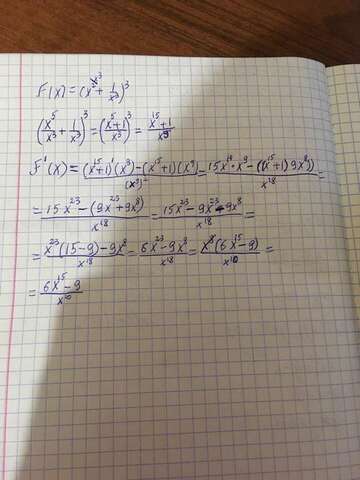 F(x) = (x³ + 1/x³)³
(x⁵/x³ + 1/x³)³ = ((x⁵+1)/x³)³ = (x¹⁵+1)/x⁹
F'(x) = ((x¹⁵+1)'(x⁹) - (x¹⁵+1)(x⁹)')/(x⁹)² = (15x¹⁴·x⁹ - ((x¹⁵+1)9x⁸))/x¹⁸ =
= (15x²³ - (9x²³+9x⁸))/x¹⁸ = (15x²³ - 9x²³ - 9x⁸)/x¹⁸ =
= (x²³(15-9) - 9x⁸)/x¹⁸ = (6x²³ - 9x⁸)/x¹⁸ = (x⁸(6x¹⁵ - 9))/x¹⁸ =
= (6x¹⁵ - 9)/x¹⁰